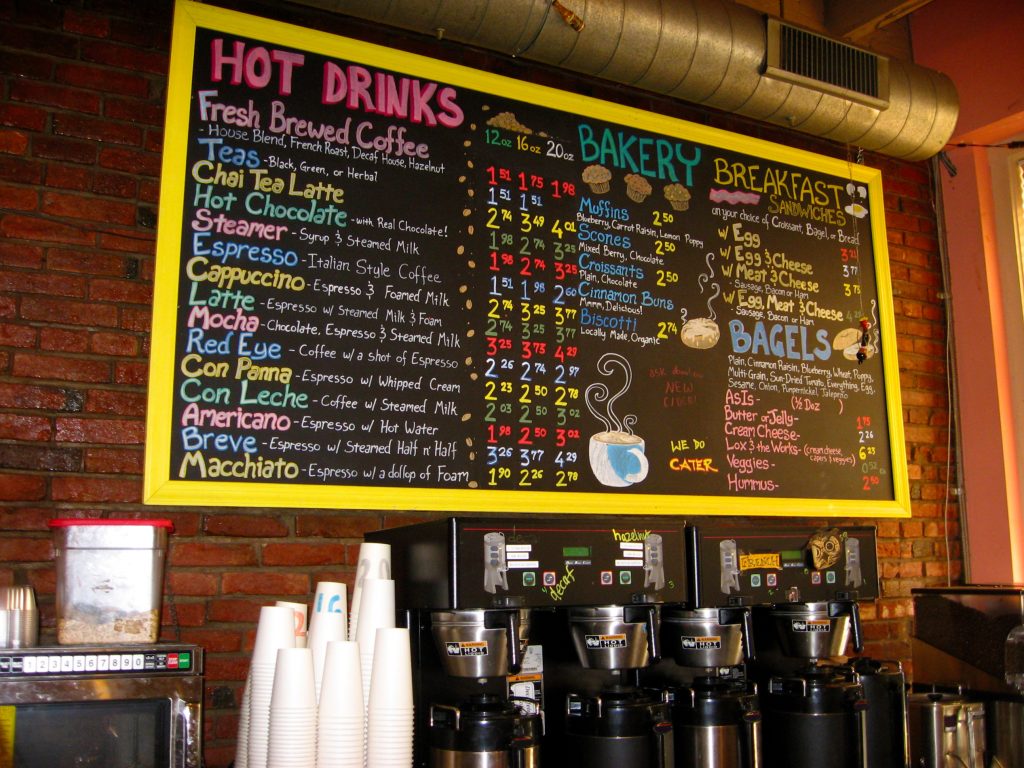 HOT DRINKS
Fresh Brewed Coffee
- House Blend, French Roast, Decaf House, Hazelnut
Teas - Black, Green, or Herbal
Chai Tea Latte
Hot Chocolate - with Real Chocolate!
Steamer - Syrup & Steamed Milk
Espresso - Italian Style Coffee
Cappuccino - Espresso & Foamed Milk
Latte - Espresso w/ Steamed Milk & Foam
Mocha - Chocolate, Espresso & Steamed Milk
Red Eye - Coffee w/ a shot of Espresso
Con Panna - Espresso w/ Whipped Cream
Con Leche - Coffee w/ Steamed Milk
Americano - Espresso w/ Hot Water
Breve - Espresso w/ Steamed Half n' Half
Macchiato - Espresso w/ a dollop of Foam
12oz 16oz 20oz
1.51 1.75 1.98
1.51 1.51
2.74 3.49 4.01
1.98 2.74 3.25
1.98 2.74 3.25
1.51 1.98 2.60
2.74 3.25 3.77
2.74 3.25 3.77
3.25 3.73 4.29
2.26 2.74 2.97
2.23 2.50 2.78
2.03 2.50 3.02
1.98 2.50 3.02
3.26 3.77 4.29
1.90 2.26 2.78
BAKERY
Muffins 2.50
Blueberry, Carrot Raisin, Lemon Poppy
Scones 2.50
Mixed Berry, Chocolate
Croissants 2.50
Plain, Chocolate
Cinnamon Buns
Mmmm, Delicious!
Biscotti 2.74
Locally Made, Organic
ask about our
NEW
WE DO
CATER
BREAKFAST
SANDWICHES
on your choice of Croissant, Bagel, or Bread
w/ Egg 3.21
w/ Egg & Cheese 3.77
w/ Meat & Cheese 3.75
- Sausage, Bacon or Ham
w/ Egg, Meat & Cheese
- Sausage, Bacon or Ham
BAGELS
Plain, Cinnamon Raisin, Blueberry, Wheat, Poppy,
Multi-Grain, Sun-Dried Tomato, Everything, Egg,
Sesame, Onion, Pumpernickel, Jalapeño
As Is - (½ Doz )
Butter or Jelly - 1.75
Cream Cheese - 2.26
Lox & the Works - (cream cheese, capers & veggies) 6.23
Veggies - 0.52
Hummus - 2.50
hazelnut
"decaf"
FRENCH
HOT
HOT
HOT
HOT
16
2
1 2 3 4 5 6 7 8 9 0